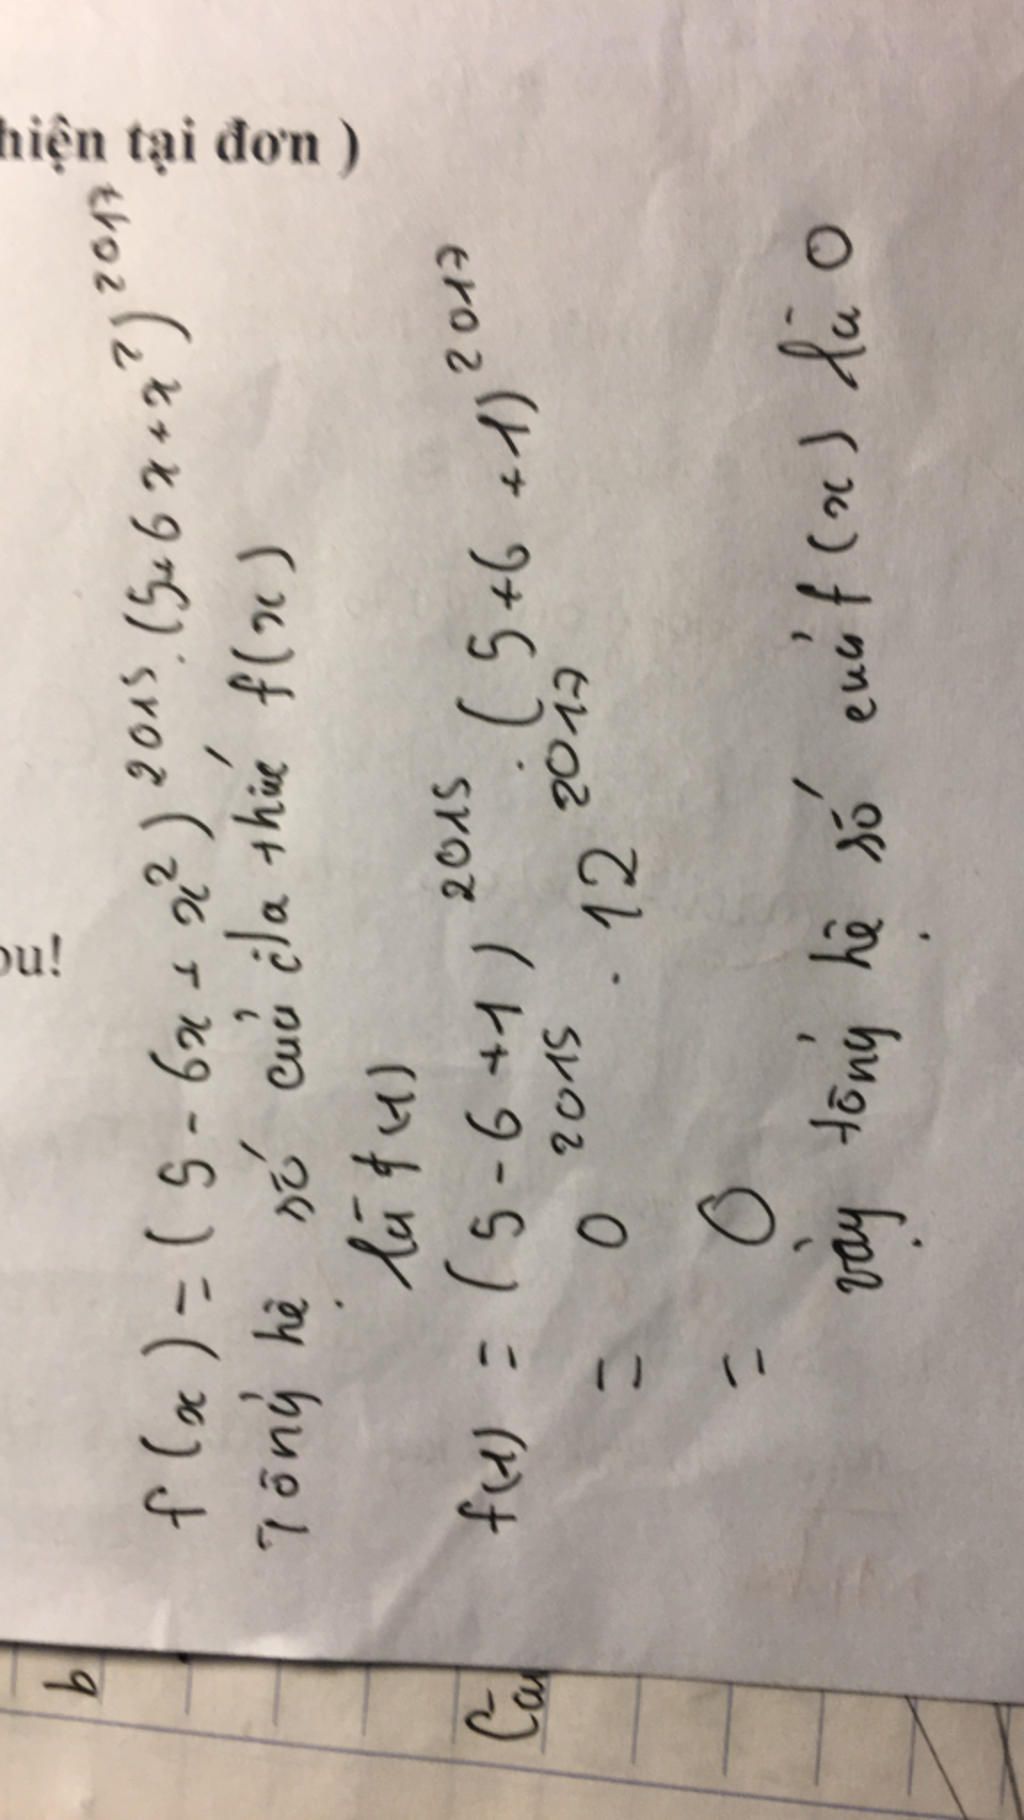 hiện tại đơn )
ou!
f(x) = (5 - 6x + x²)²⁰¹⁵.(5+6x+x²)²⁰¹⁷
Tổng hệ số của đa thức f(x)
là f(1)
f(1) = (5 - 6 + 1)²⁰¹⁵.(5+6+1)²⁰¹⁷
= 0²⁰¹⁵ . 12²⁰¹⁷
= 0
vậy tổng hệ số của f(x) là 0
b